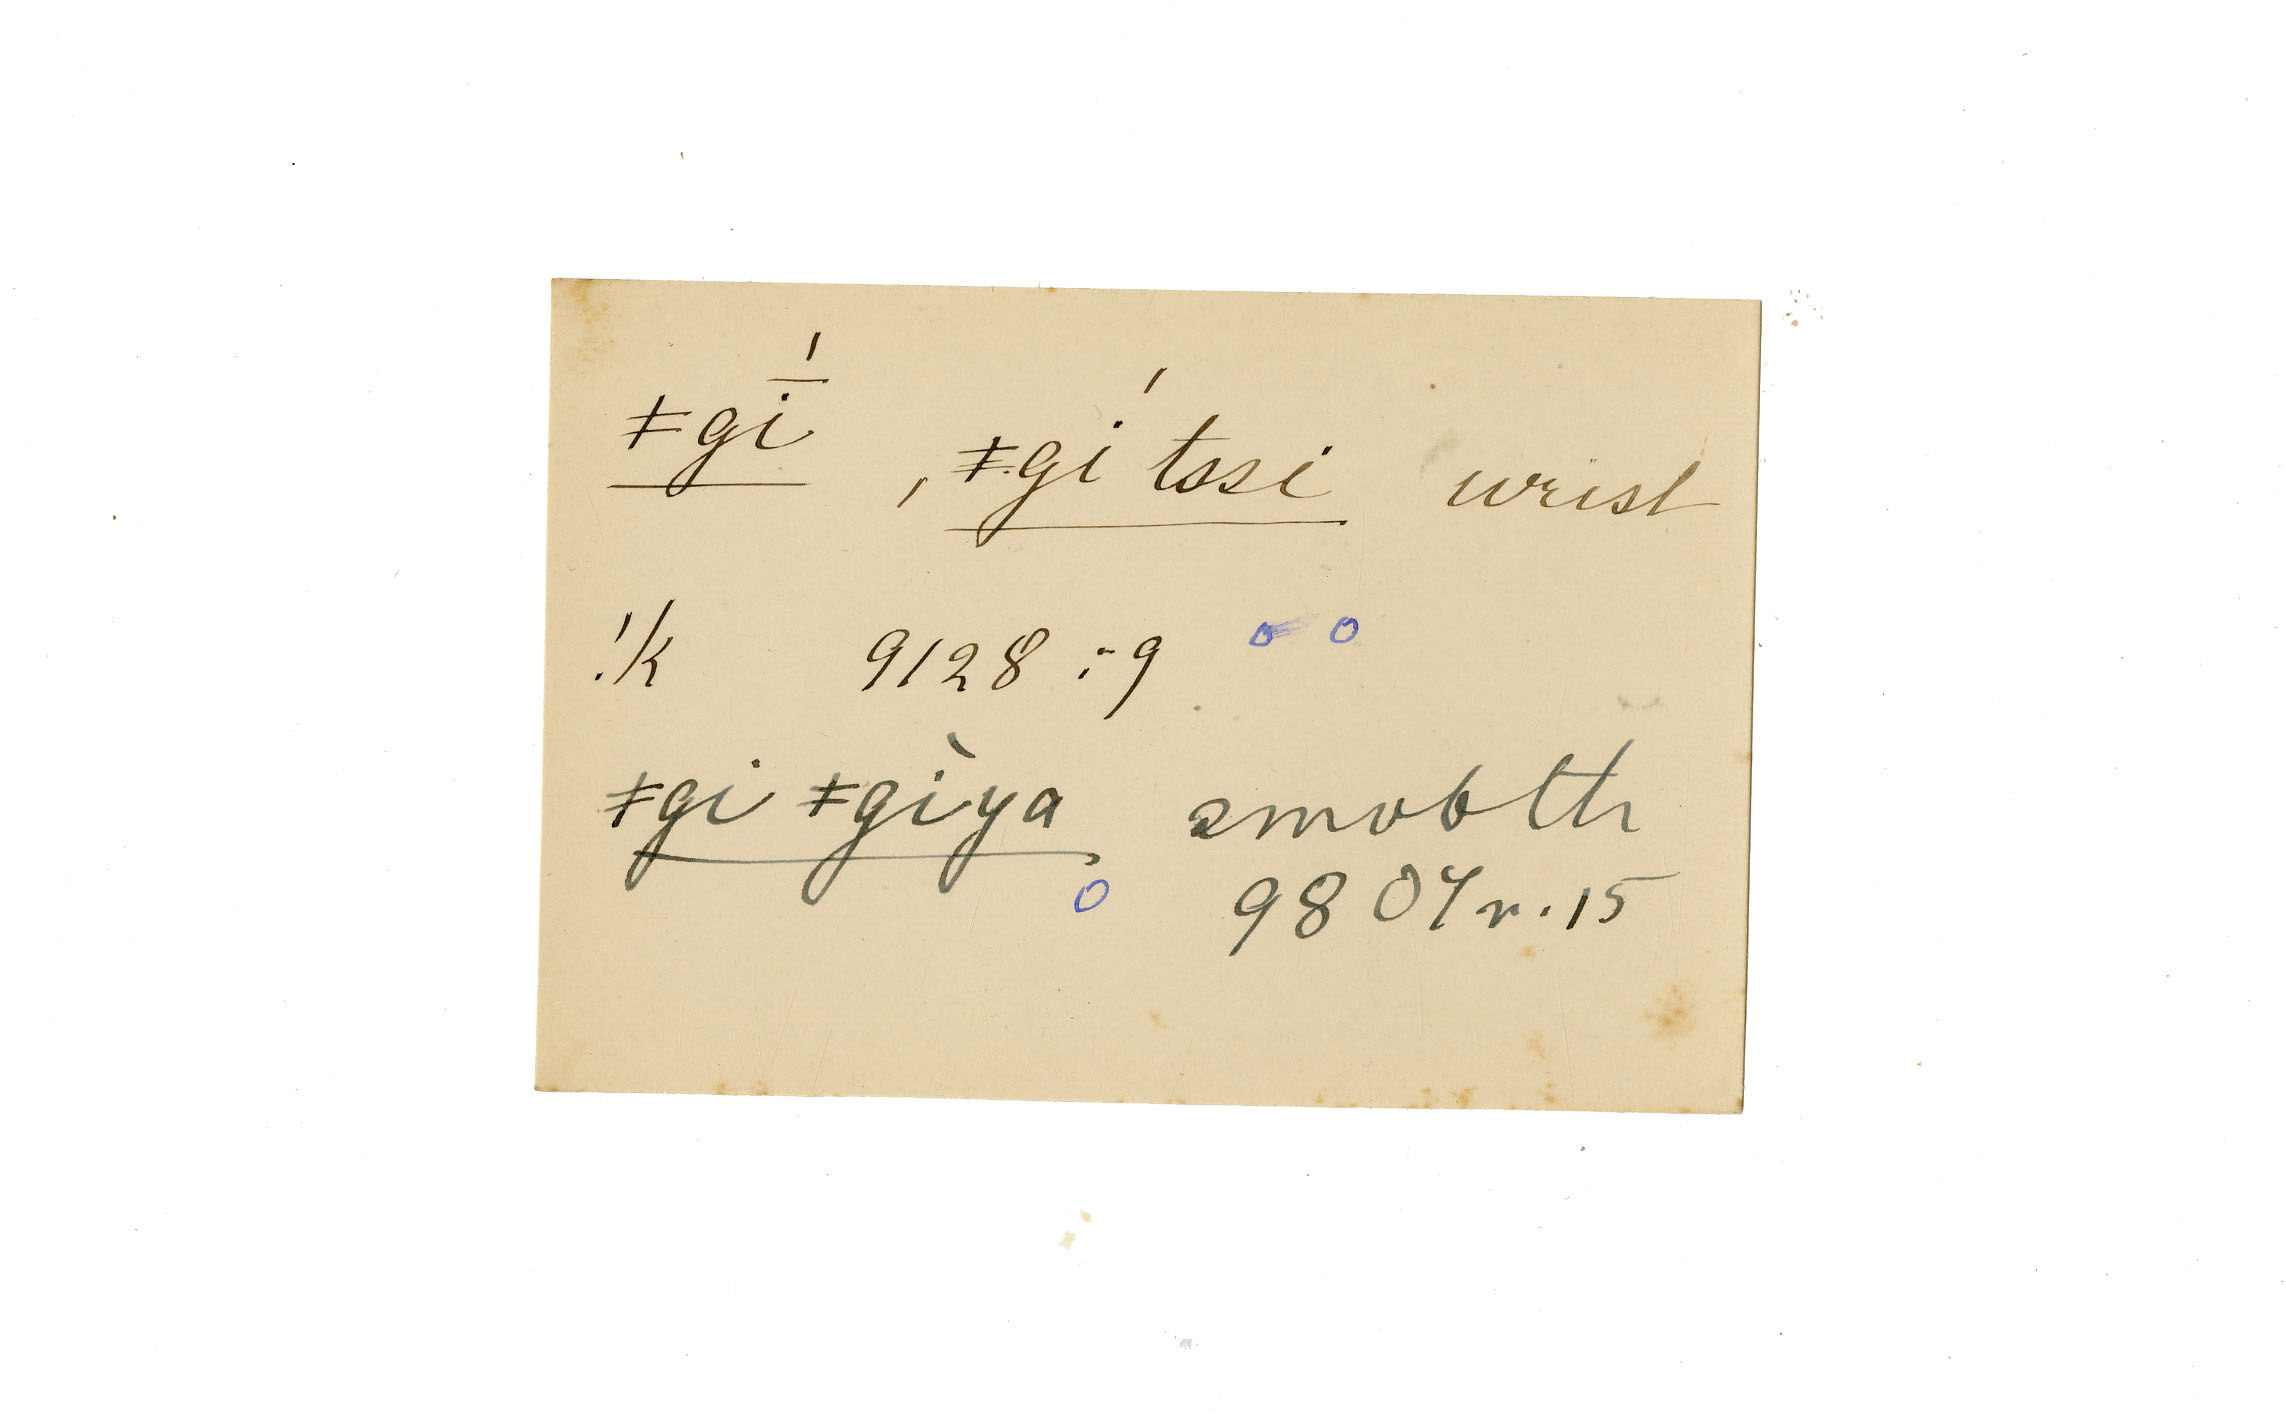 ǂgī́, ǂgí tssi wrist
!k 9128 :-9 o o
ǂgi ǂgìya smooth
o 9804 r. 15